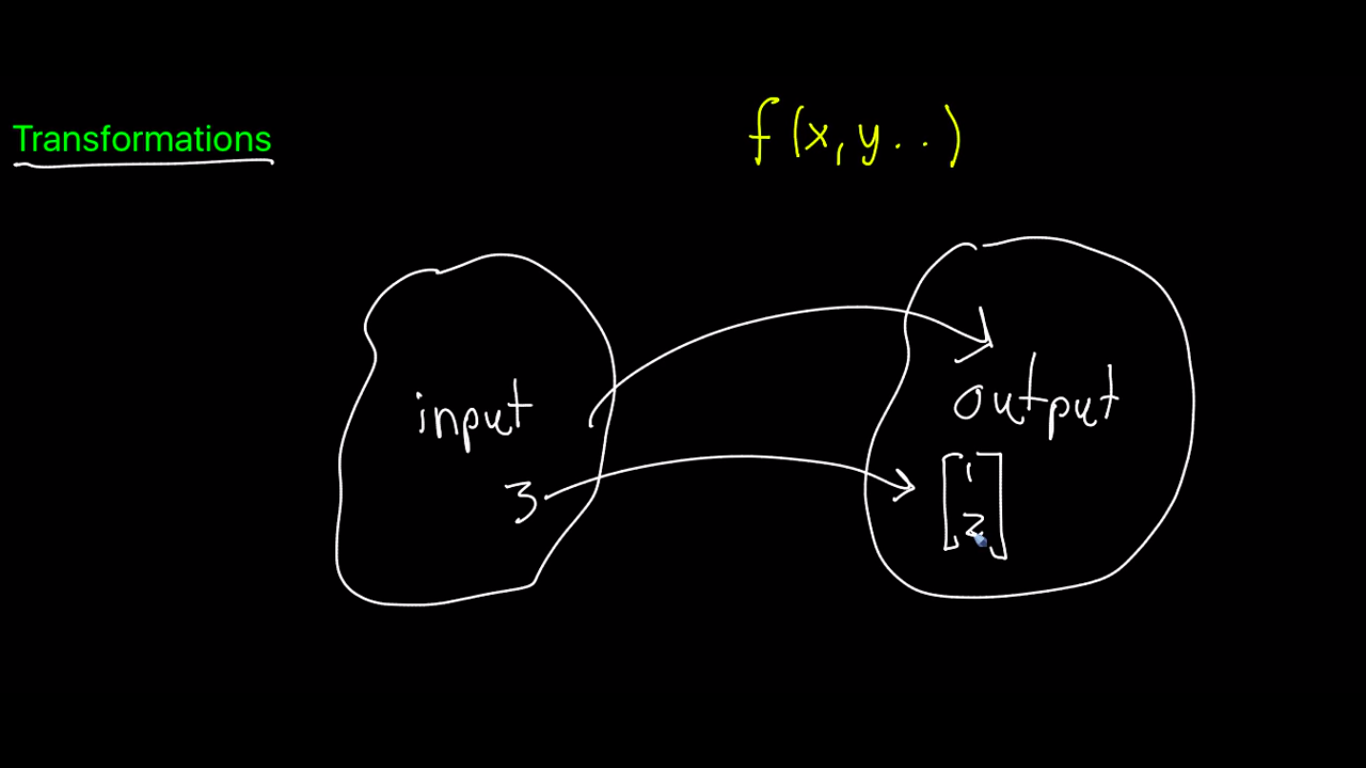 Transformations
f(x, y..)
input
output
3
[1
2]